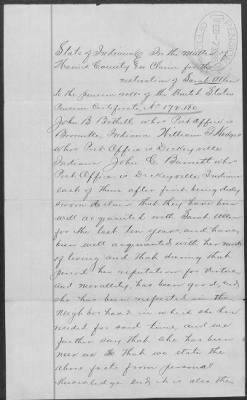 State of Indiana In the matter
County Claim for the
restoration of Sarah Allen
to the pension roll of the United States
Pension Certificate No 178.180
John B Bothell whose Post office is
Indiana William
whose Post Office is Dickeyville
Indiana John C. Barnett whose
Post Office is Dickeyville Indiana
each of them after first being duly
sworn declare that they have been
well acquainted with Sarah Allen
for the last ten years, and have
been well acquainted with her mode
of living and that during that
period her reputation for virtue
and morality has been good, and
she has been respected in the
Neighborhood in where she has
for said time, and we
further say that she has been
that we state the
above facts from personal
Knowledge and it is also the